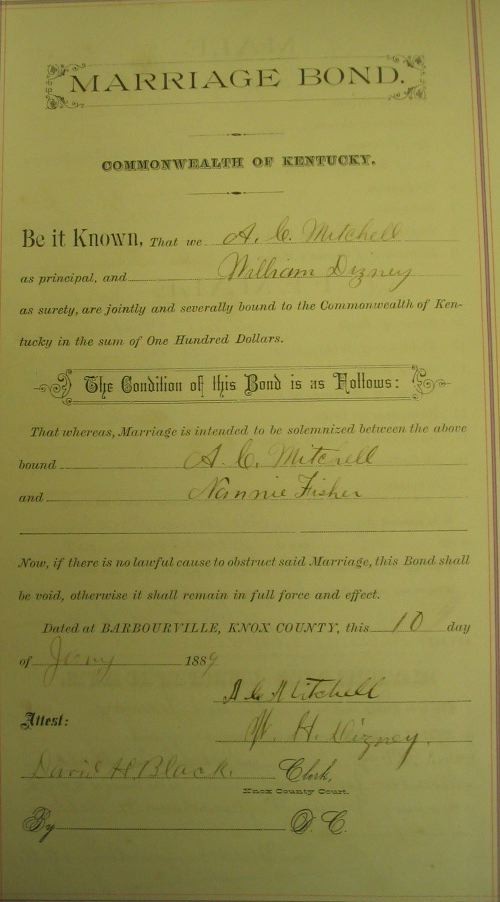 MARRIAGE BOND.
COMMONWEALTH OF KENTUCKY.
Be it Known, That we A. C. Mitchell
as principal, and William Dizney
as surety, are jointly and severally bound to the Commonwealth of Ken-
tucky in the sum of One Hundred Dollars.
The Condition of this Bond is as Follows:
That whereas, Marriage is intended to be solemnized between the above
bound A. C. Mitchell
and Nannie Fisher
Now, if there is no lawful cause to obstruct said Marriage, this Bond shall
be void, otherwise it shall remain in full force and effect.
Dated at BARBOURVILLE, KNOX COUNTY, this 10 day
of Jany 1889
A C Mitchell
Attest:
W. H. Dizney.
David H Black. Clerk,
Knox County Court.
By D. C.